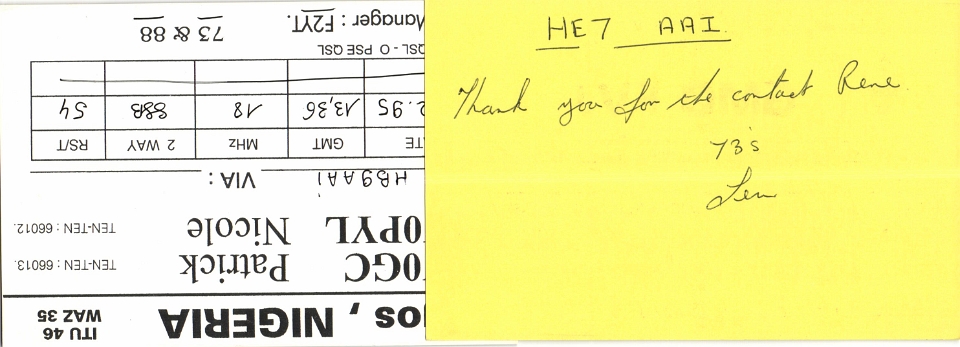 os , NIGERIA
ITU 46
WAZ 35
0GC Patrick TEN-TEN : 66013.
0PYL Nicole TEN-TEN : 66012.
HB9AAi VIA :
GMT MHz 2 WAY RS/T
2.95 13,36 18 SSB 54
QSL - O PSE QSL
Manager : F2YT. 73 & 88
HE7 AAI
Thank you for the contact Rene
73's
Len